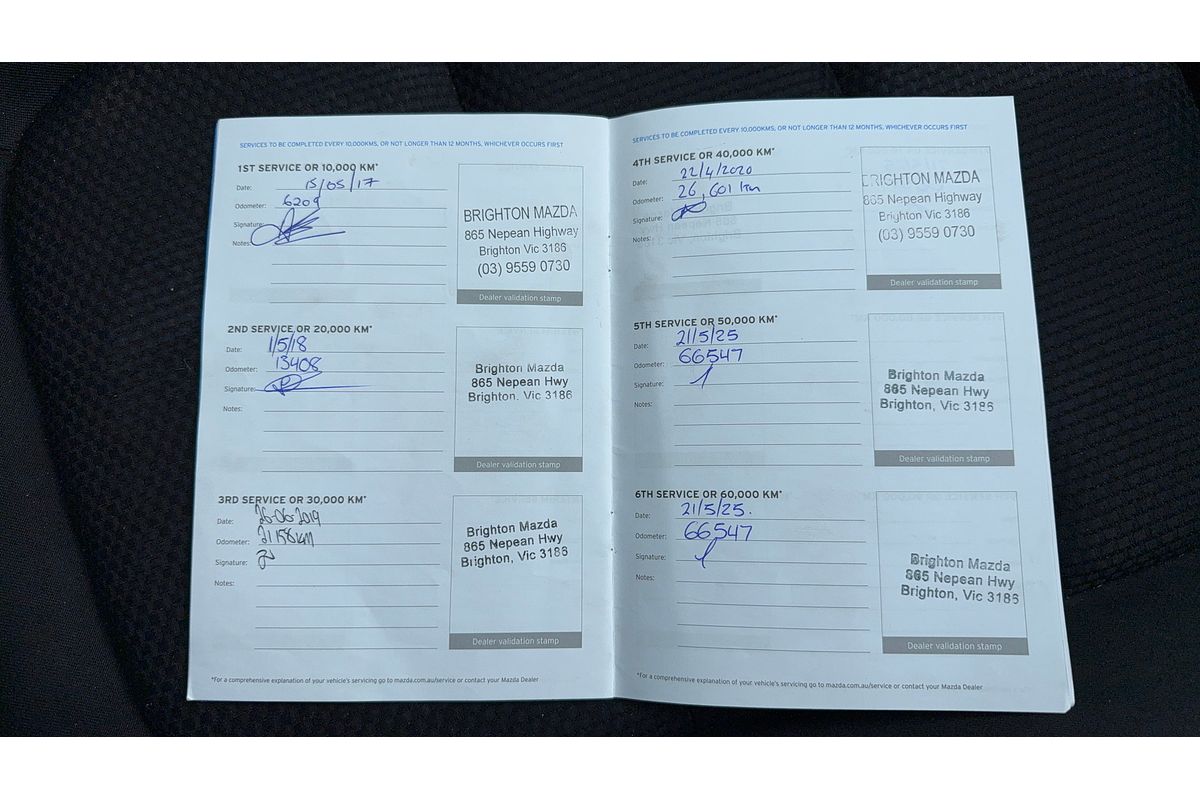 SERVICES TO BE COMPLETED EVERY 10,000KMS, OR NOT LONGER THAN 12 MONTHS, WHICHEVER OCCURS FIRST
1ST SERVICE OR 10,000 KM*
Date: 15/05/17
Odometer: 6209
Signature:
Notes:
BRIGHTON MAZDA
865 Nepean Highway
Brighton Vic 3186
(03) 9559 0730
Dealer validation stamp
2ND SERVICE OR 20,000 KM*
Date: 1/5/18
Odometer: 13408
Signature:
Notes:
Brighton Mazda
865 Nepean Hwy
Brighton, Vic 3186
Dealer validation stamp
3RD SERVICE OR 30,000 KM*
Date: 26-06-2019
Odometer: 21158km
Signature:
Notes:
Brighton Mazda
865 Nepean Hwy
Brighton, Vic 3186
Dealer validation stamp
*For a comprehensive explanation of your vehicle's servicing go to mazda.com.au/service or contact your Mazda Dealer
SERVICES TO BE COMPLETED EVERY 10,000KMS, OR NOT LONGER THAN 12 MONTHS, WHICHEVER OCCURS FIRST
4TH SERVICE OR 40,000 KM*
Date: 22/4/2020
Odometer: 26,601 km
Signature:
Notes:
BRIGHTON MAZDA
865 Nepean Highway
Brighton Vic 3186
(03) 9559 0730
Dealer validation stamp
5TH SERVICE OR 50,000 KM*
Date: 21/5/25
Odometer: 66547
Signature:
Notes:
Brighton Mazda
865 Nepean Hwy
Brighton, Vic 3186
Dealer validation stamp
6TH SERVICE OR 60,000 KM*
Date: 21/5/25.
Odometer: 66547
Signature:
Notes:
Brighton Mazda
865 Nepean Hwy
Brighton, Vic 3186
Dealer validation stamp
*For a comprehensive explanation of your vehicle's servicing go to mazda.com.au/service or contact your Mazda Dealer